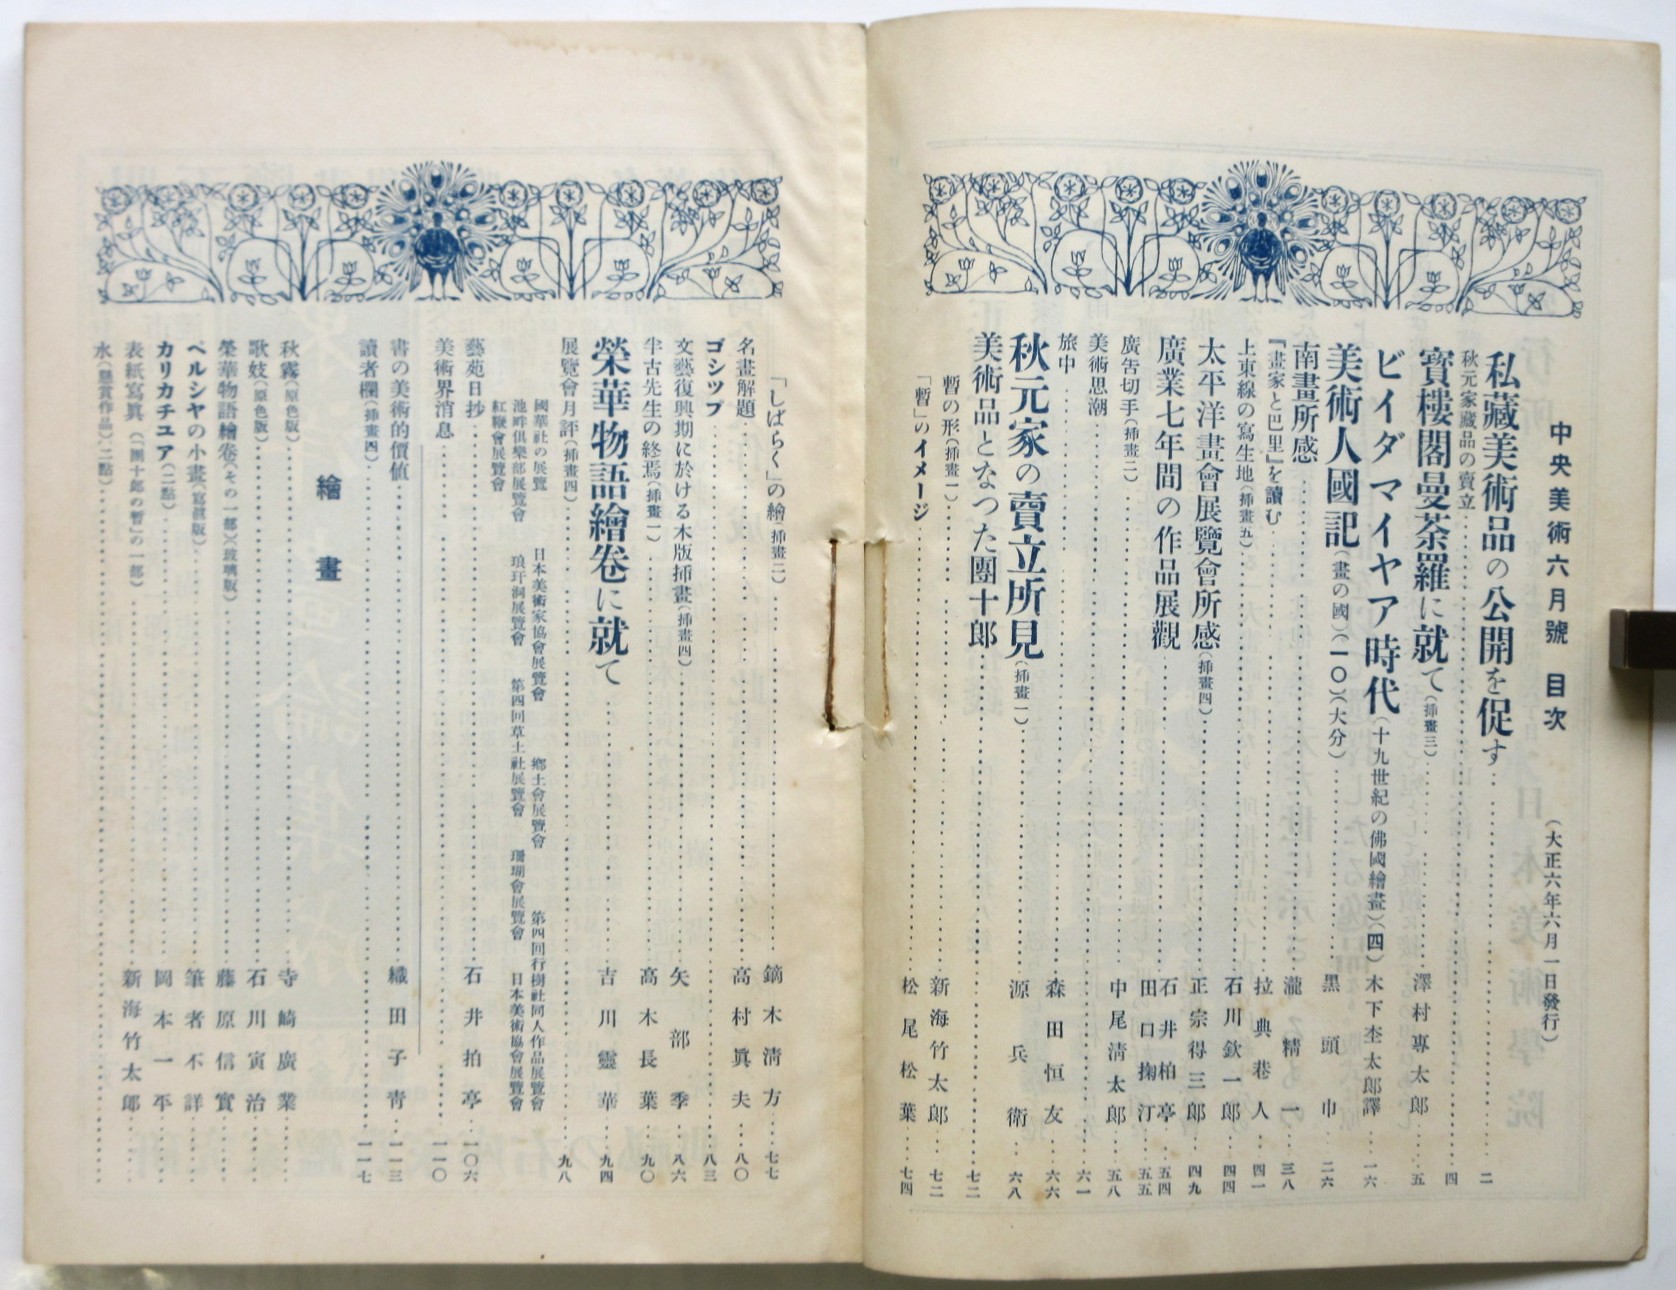 中央美術六月號 目次 (大正六年六月一日發行)
私藏美術品の公開を促す 二
秋元家藏品の賣立 四
寳樓閣曼荼羅に就て(挿畫三) 澤村專太郎 五
ビイダマイヤア時代(十九世紀の佛國繪畫)(四) 木下杢太郎譯 一六
美術人國記(畫の國)(一〇)(大分) 黑頭巾 二六
南畫所感 瀧精一 三八
『畫家と巴里』を讀む 拉典巷人 四一
上東線の寫生地(挿畫五) 石川欽一郎 四四
太平洋畫會展覽會所感(挿畫四) 正宗得三郎 四九
廣業七年間の作品展觀 石井柏亭 五四
田口掬汀 五五
廣告切手(挿畫二) 中尾淸太郎 五八
美術思潮 六一
旅中 森田恒友 六六
秋元家の賣立所見(挿畫一) 源兵衛 六八
美術品となつた團十郎 七二
暫の形(挿畫一) 新海竹太郎 七二
「暫」のイメージ 松尾松葉 七四
「しばらく」の繪(挿畫二) 鏑木淸方 七七
名畫解題 高村眞夫 八〇
ゴシツプ 八三
文藝復興期に於ける木版挿畫(挿畫四) 矢部季 八六
半古先生の終焉(挿畫一) 高木長葉 九〇
榮華物語繪卷に就て 吉川靈華 九四
展覽會月評(挿畫四) 九八
國華社の展覽 日本美術家協會展覽會 鄕土會展覽會 第四回行樹社同人作品展覽會
池畔倶樂部展覽會 琅玕洞展覽會 第四回草土社展覽會 珊瑚會展覽會 日本美術協會展覽會
紅鞭會展覽會
藝苑日抄 石井柏亭 一〇六
美術界消息 一一〇
書の美術的價値 織田子靑 一一三
讀者欄(挿畫四) 一一七
繪畫
秋霧(原色版) 寺崎廣業
歌妓(原色版) 石川寅治
榮華物語繪卷(その一部)(玻璃版) 藤原信實
ペルシヤの小畫(寫眞版) 筆者不詳
カリカチユア(二點) 岡本一平
表紙寫眞(「團十郎の暫」の一部) 新海竹太郎
水(懸賞作品)(二點)